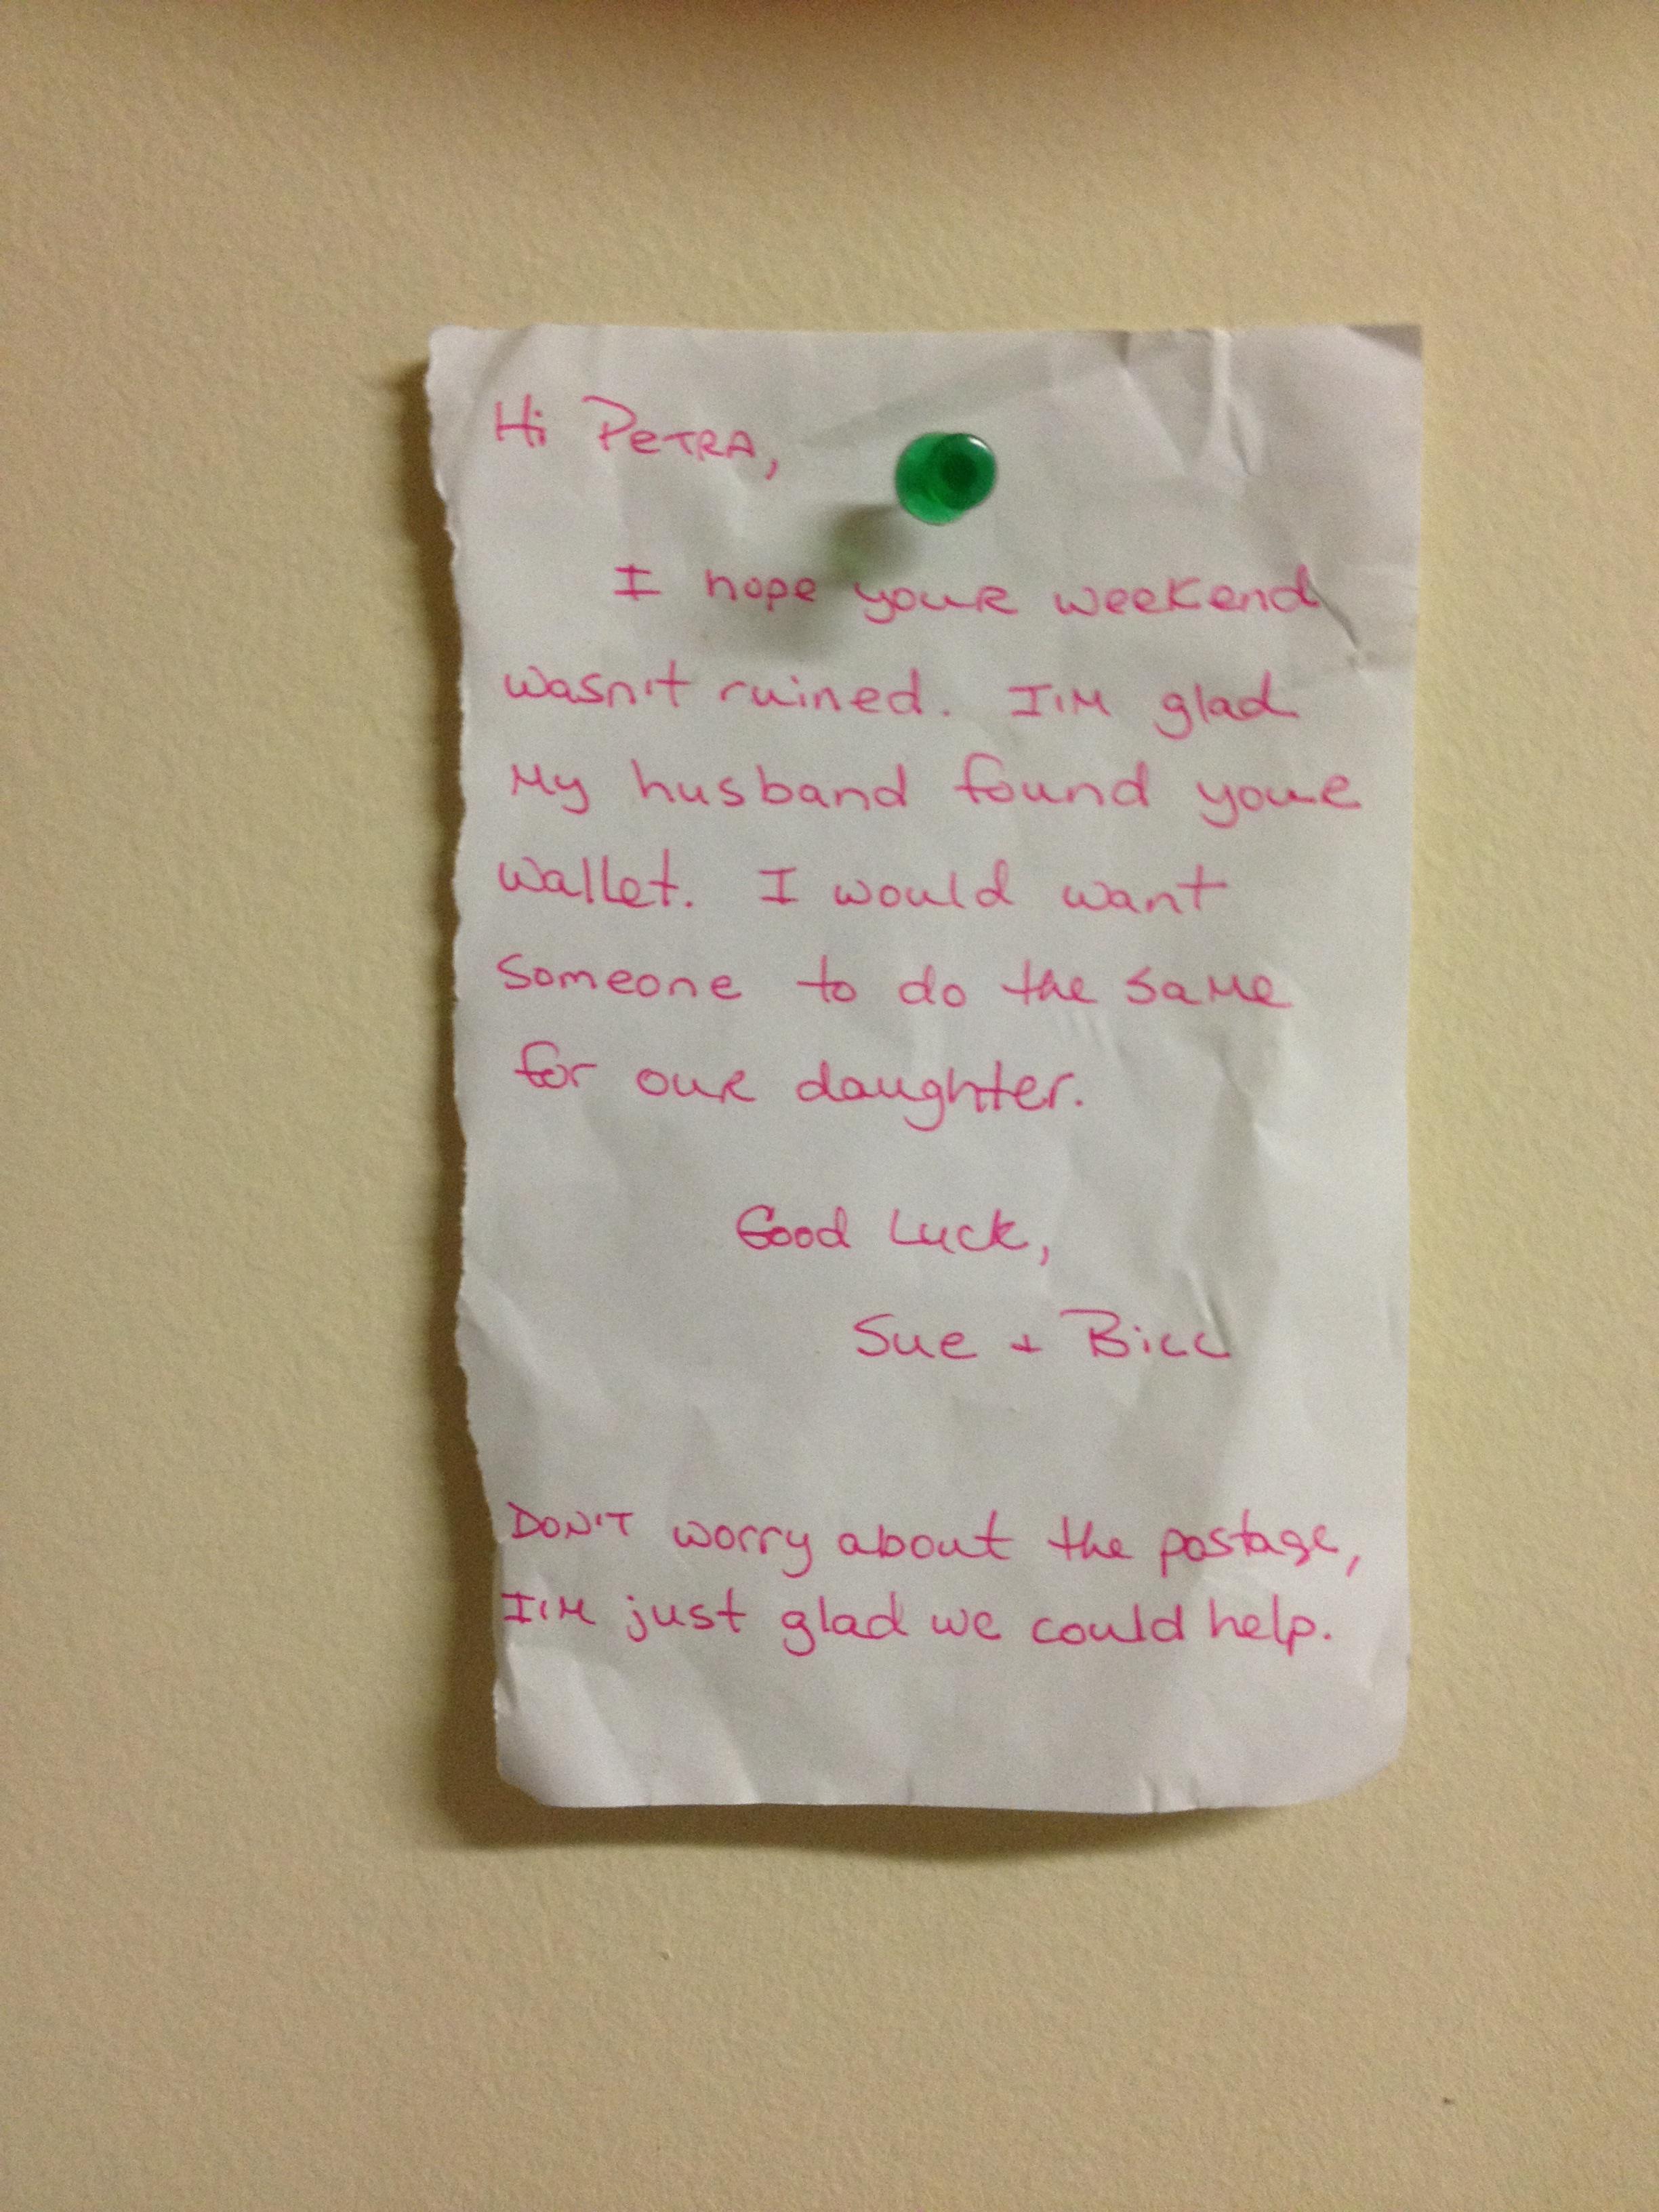 Hi PeTRA,
I hope youR weekend
wasn't ruined. I'M glad
My husband found youR
wallet. I would want
Someone to do the saMe
for ouR daughter.
Good Luck,
Sue + BiLL
DON'T worry about the postage,
I'M just glad we could help.